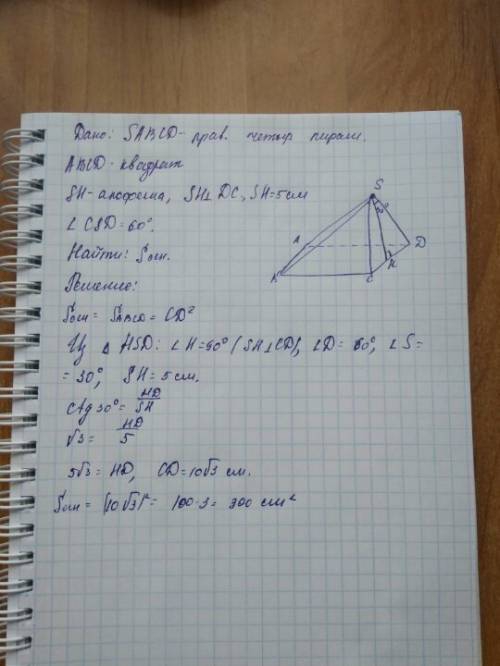 Дано: SABCD - прав. четыр. пирам.
ABCD - квадрат
SH - апофема, SH⊥DC, SH=5 см
∠CSD=60°.
Найти: Sосн.
Решение:
Sосн = SABCD = CD²
Из △ HSD: ∠H=90° (SH⊥CD), ∠D= 60°, ∠S=
= 30°, SH = 5 см.
ctg 30° = HD/SH
√3 = HD/5
5√3 = HD, CD=10√3 см.
Sосн = (10√3)² = 100·3 = 300 см²
S
30°
A
D
H
C